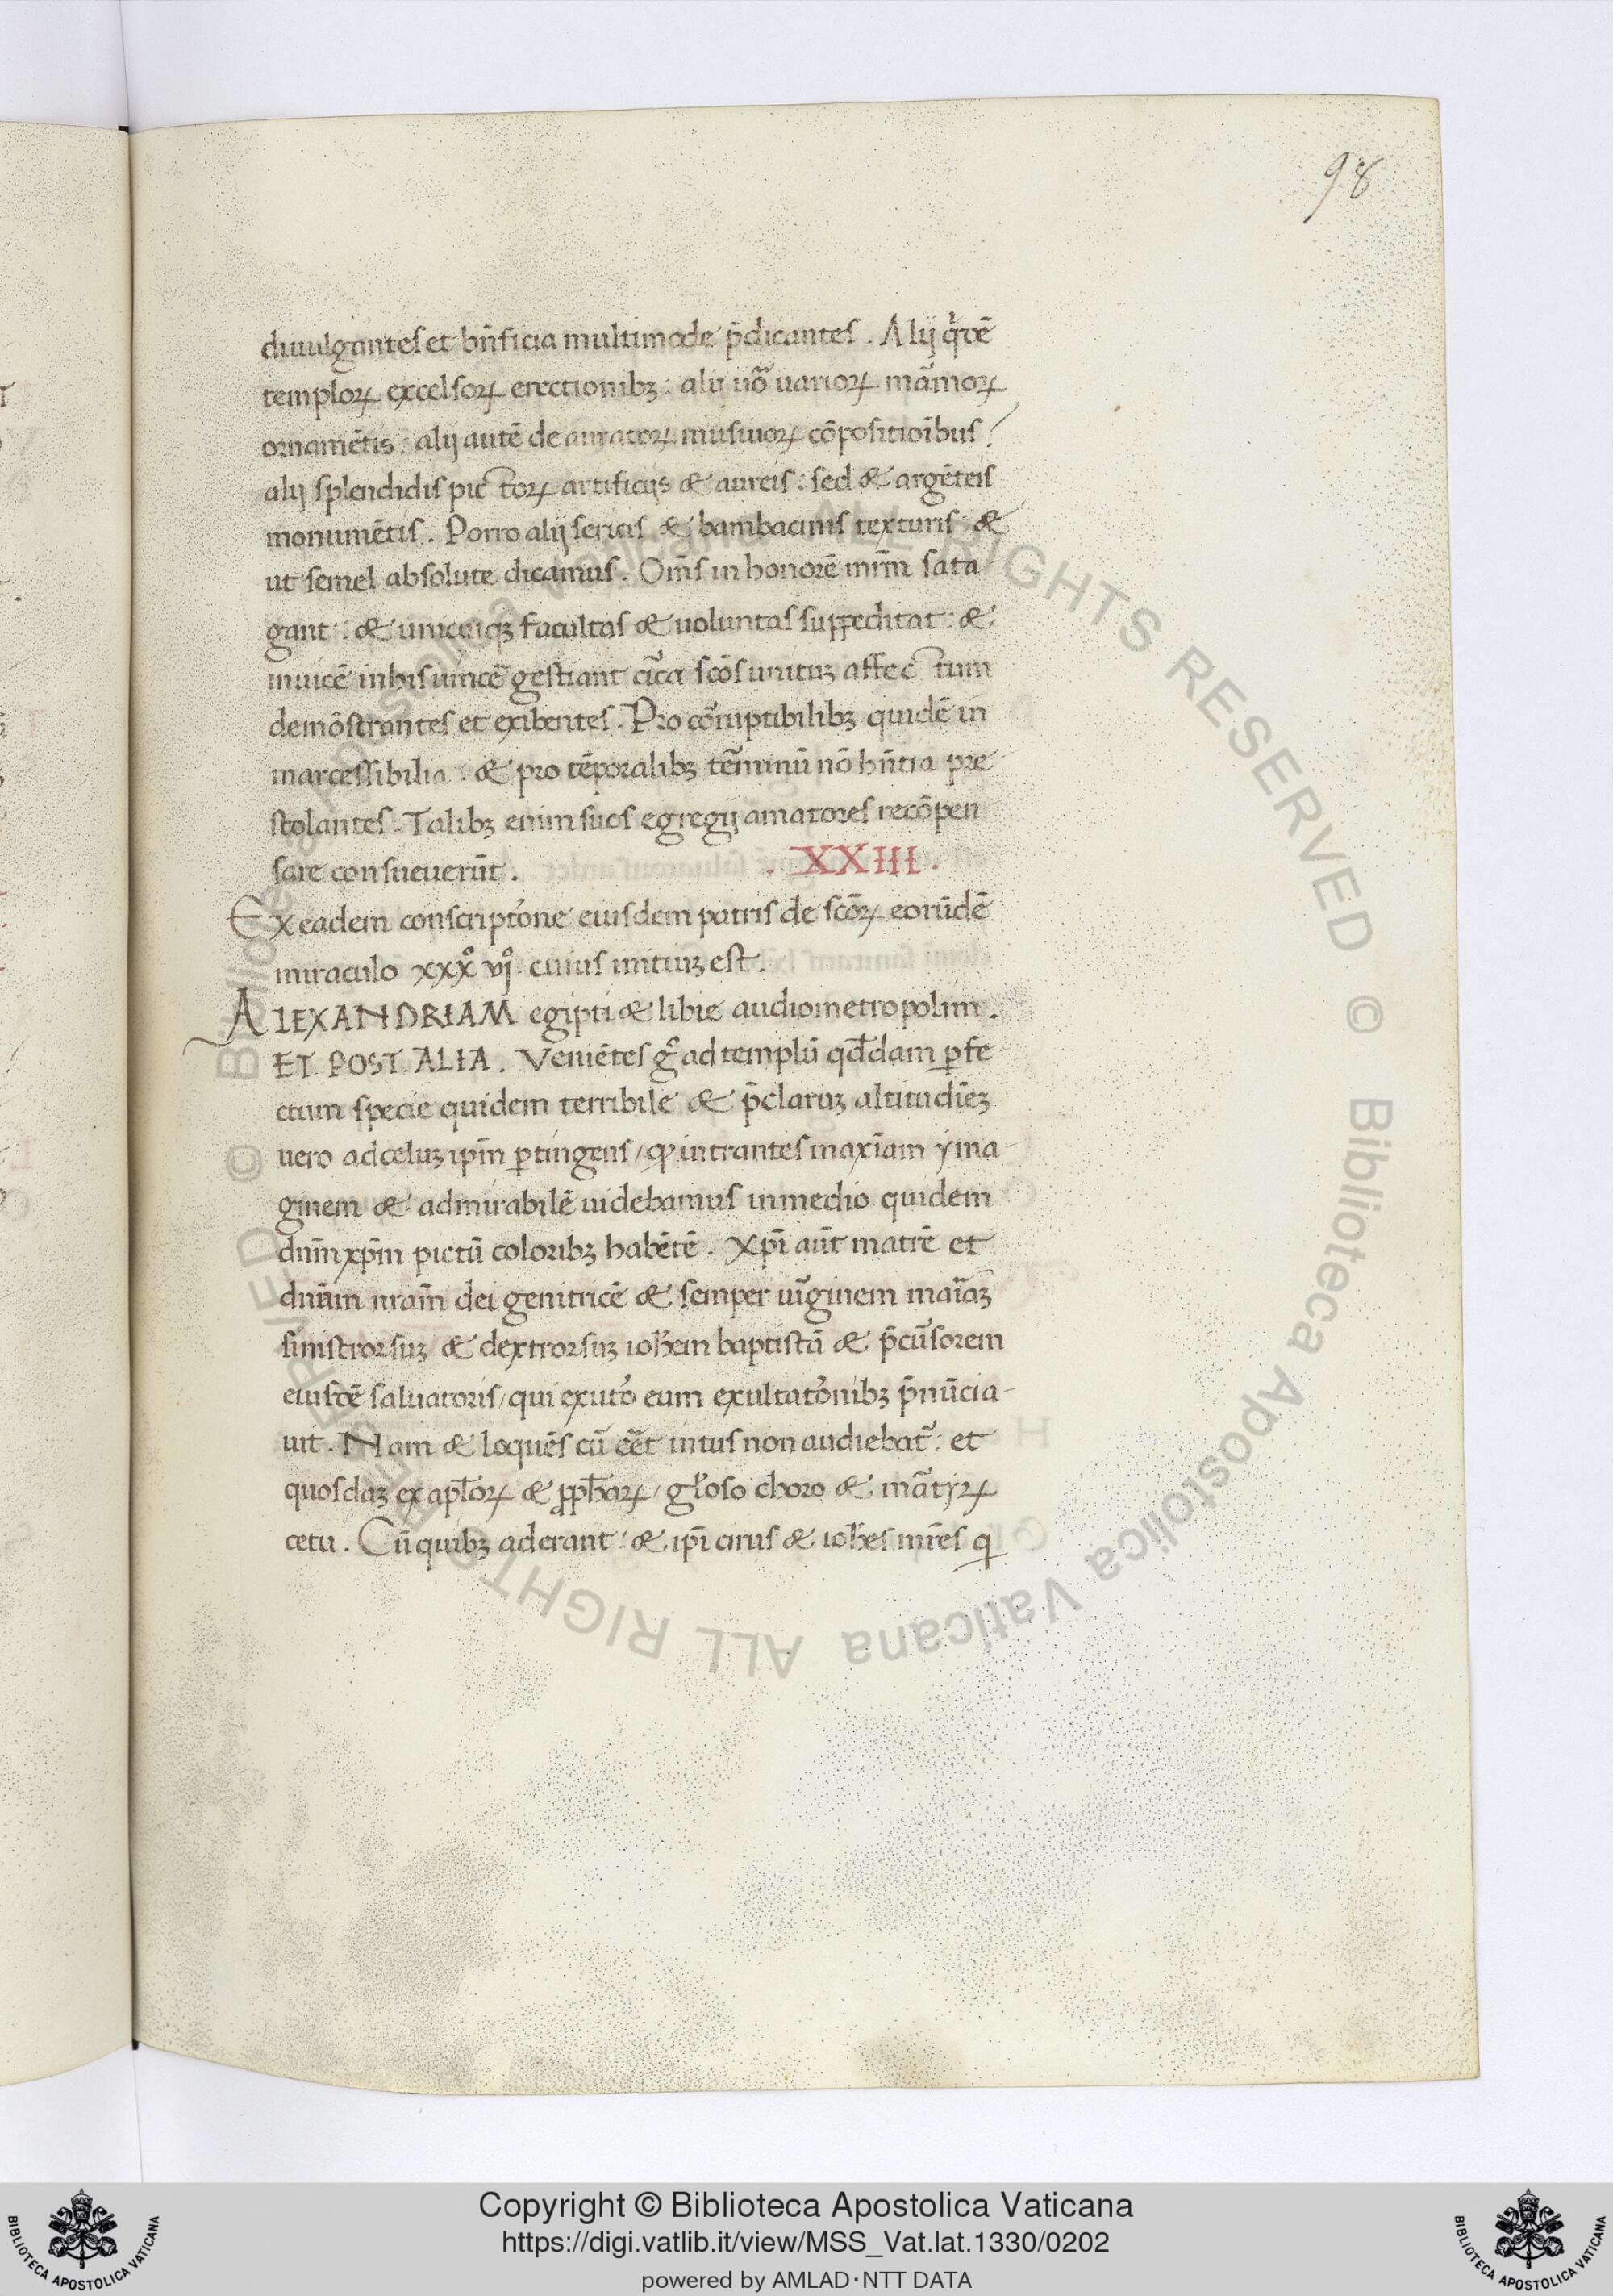 98
diuulgantes et bn̄ficia multimode p̄dicantes. Alij q̇dē
temploꝝ excelsoꝝ erectionibꝫ: alij uō uarioꝝ mãmoꝝ
ornamētis: alij autē de auratoꝝ musiuoꝝ cōpositioībus:
alij splendidis pictoꝝ artificijs & aureis: sed & argēteis
monumētis. Porro alij sericis & bambacinis texturis: &
ut semel absolute dicamus. Om̄s in honorē mr̄m sata
gant: & unicuiqꝫ facultas & uoluntas suppeditat: &
inuicē in his uincē gestiant cĩca sc̄os unituꝫ affectum
demōstrantes et exibentes. Pro cor̃uptibilibꝫ quidē in
marcessibilia: & pro tēporalibꝫ ter̃minū nō hn̄tia pre
stolantes. Talibꝫ enim suos egregij amatores recōpen
sare consueuerūt. . XXIII .
Ex eadem conscript̃one eiusdem patris de sc̄oꝝ eorūdē
miraculo xxxº vjº. cuius initiuꝫ est.
ALEXANDRIAM egipti & libie audiometropolim.
ET POST ALIA. Veniētes gº ad templū qd̄dam ꝑfe
ctum specie quidem terribile & p̄claruꝫ altitudiēꝫ
uero ad celuꝫ ip̄m ꝑtingens / ꝙ intrantes maxīam yma-
ginem & admirabilē uidebamus in medio quidem
dn̄m xp̄m pictū coloribꝫ habētē. Xp̄i aūt matrē et
dn̄am nr̄am dei genitricē & semper uĩginem mar̄iaꝫ
sinistrorsuꝫ & dextrorsuꝫ ioh̄em baptistā & p̄cũsorem
eiusdē saluatoris / qui ex ut̃o eum exultat̃onibꝫ p̄nūcia-
uit. Nam & loquēs cū eēt intus non audiebat̃: et
quosdaꝫ ex apl̄oꝝ & ꝓph̄aꝝ / gl̃oso choro & mãtyꝝ
cetu. Cū quibꝫ aderant: & ip̄i cirus & ioh̄es mr̄es q
Copyright © Biblioteca Apostolica Vaticana
https://digi.vatlib.it/view/MSS_Vat.lat.1330/0202
powered by AMLAD·NTT DATA